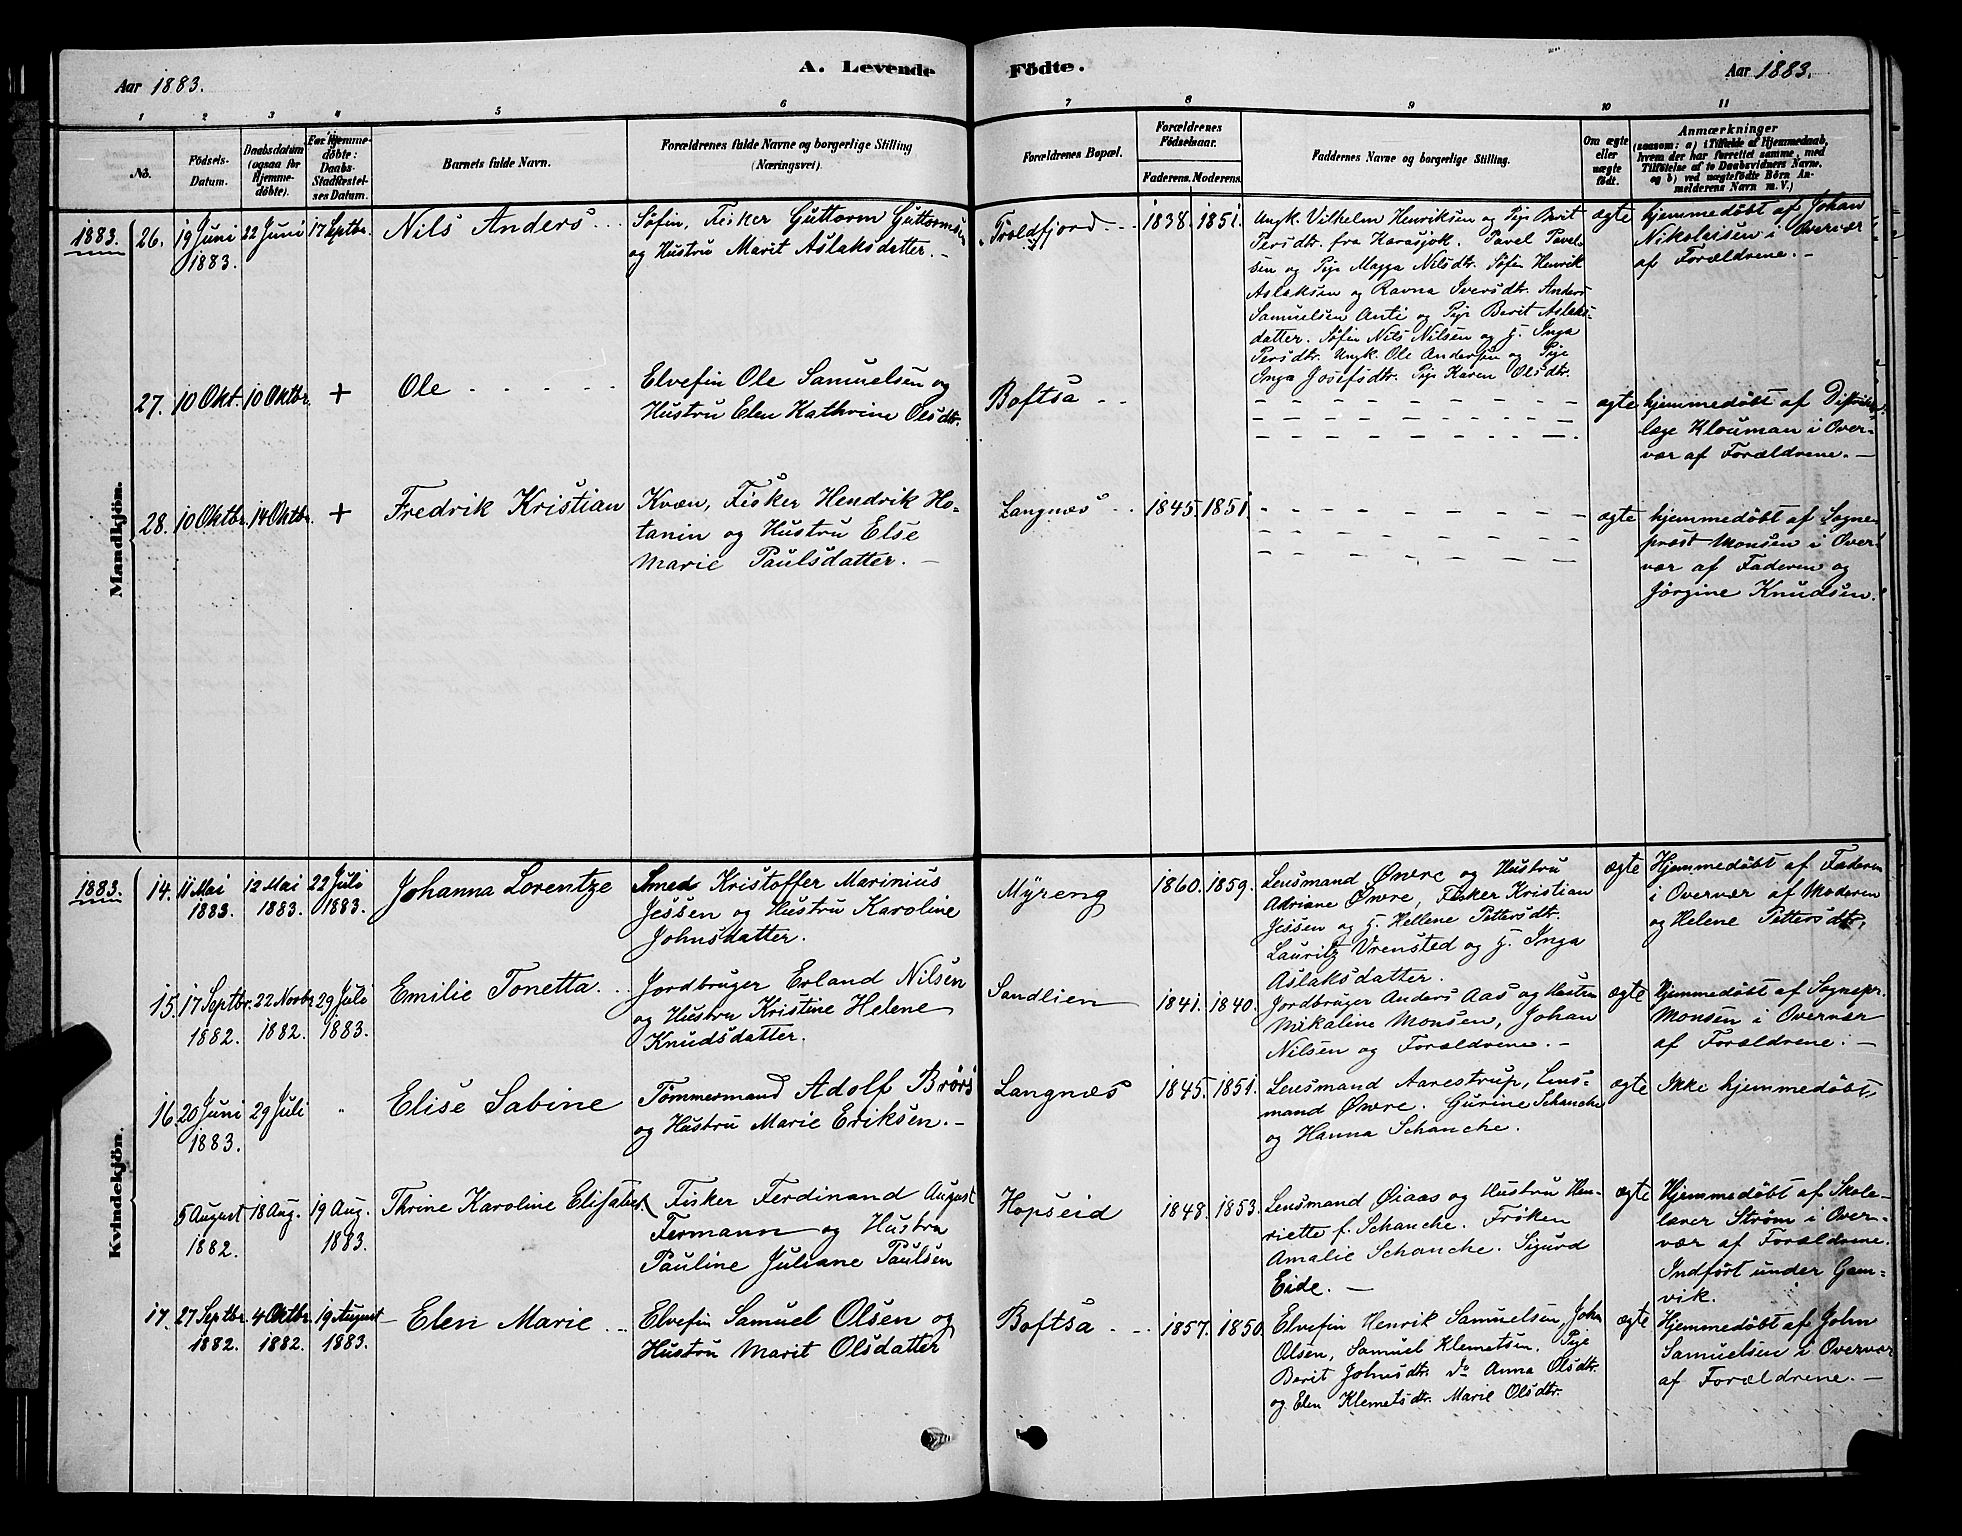 Aar 1883.
A. Levende Födte.
Aar 1883.
1 2 3 4 5 6 7 8 9 10 11
No.
Födsels-
Datum.
Daabsdatum
(ogsaa for
Hjemme-
døbte).
For Hjemme-
døbte:
Daabs-
Stadfæstel-
ses Datum.
Barnets fulde Navn.
Forældrenes fulde Navne og borgerlige Stilling
(Næringsvei).
Forældrenes Bopæl.
Forældrenes
Fødselsaar.
Faderens. Moderens.
Faddernes Navne og borgerlige Stilling.
Om ægte
eller
uægte
født.
Anmærkninger
(saasom: a) i Tilfælde af Hjemmedaab,
hvem der har forrettet samme, med
Tilføielse af to Daabsvidners Navne,
og b) ved uægtefødte Børn An-
melderens Navn m. V.)
Mandkjön.
1883. 26.
19 Juni
1883.
22 Juni
17 Septbr.
Nils Anders
Søfin, Fisker Guttorm Guttormsen
og Hustru Marit Aslaksdatter. —
Troldfjord
1838. 1851.
Ungk. Vilhelm Henriksen og Pige Berit
Persdtr. fra Karasjok. Pavel Pavel-
sen og Pige Magga Nilsdtr. Søfin Henrik
Aslaksen og Ravna Iversdtr. Anders
Samuelsen Anti og Pige Berit Aslaks-
datter. Søfin Nils Nilsen og H. Inga
Persdtr. Ungk. Ole Andersen og Pige
Inga Josefsdtr. Pige Karen Olsdtr.
ægte
hjemmedøbt af Johan
Nikolaisen i Overvær
af Forældrene. —
27.
10 Okt.
10 Oktbr.
+
Ole
Elvefin Ole Samuelsen og
Hustru Elen Kathrine Olsdtr.
Boftsa
ægte
hjemmedøbt af Distrikts-
læge Klouman i Over-
vær af Forældrene. —
28.
10 Oktbr.
14 Oktbr.
+
Fredrik Kristian
Kvæn, Fisker Hendrik Ho-
tanin og Hustru Else
Marie Paulsdatter. —
Langnæs
1845. 1851.
ægte
hjemmedøbt af Sogne-
præst Monsen i Over-
vær af Faderen og
Jørgine Knudsen.
Kvindekjön.
1883. 14.
11 Mai
1883.
12 Mai
1883.
22 Juli
1883.
Johanna Lorentze
Smed Kristoffer Marinius
Jessen og Hustru Karoline
Johnsdatter.
Myreng
1860. 1859.
Lensmand Øwre og Hustru
Adriane Øwre, Fisker Kristian
Jessen og H. Hellene Pettersdtr.
Lauritz Vrensted og H. Inga
Aslaksdatter.
ægte
Hjemmedøbt af Faderen
i Overvær af Moderen
og Helene Pettersdtr.
15.
17 Septbr.
1882.
22 Novbr
1882.
29 Juli
1883.
Emilie Tonetta
Jordbruger Erland Nilsen
og Hustru Kristine Helene
Knudsdatter.
Sandlien
1841. 1840.
Jordbruger Anders Aas og Hustru
Mikaline Monsen, Johan
Nilsen og Forældrene. —
ægte
Hjemmedøbt af Sognepr.
Monsen i Overvær
af Forældrene. —
16.
20 Juni
1883.
29 Juli
"
Elise Sabine
Tømmermand Adolf Brørs
og Hustru Marie Eriksen. —
Langnæs
1845. 1851.
Lensmand Aarestrup, Lens-
mand Øwre. Gurine Schanche
og Hanna Schanche.
ægte
Ikke hjemmedøbt.
5 August
1882.
18 Aug.
19 Aug.
1883.
Thrine Karoline Elisabet
Fisker Ferdinand August
Fermann og Hustru
Pauline Juliane Paulsen
Hopseid
1848. 1853.
Lensmand Øiaas og Hustru Hen-
riette f. Schanche. Frøken
Amalie Schanche. Sigurd
Eide. —
ægte
Hjemmedøbt af Skole-
lærer Strøm i Over-
vær af Forældrene.
Indført under Gam-
vik.
17.
27 Septbr.
1882.
4 Oktbr.
1882.
19 August
1883.
Elen Marie
Elvefin Samuel Olsen og
Hustru Marit Olsdatter
Boftsa
1857. 1850.
Elvefin Henrik Samuelsen, John
Olsen, Samuel Klemetsen. Pige
Berit Johnsdtr. do Anna Olsdtr.
og Elen Klemetsdtr. Marie Olsdtr.
ægte
Hjemmedøbt af John
Samuelsen i Overvær
af Forældrene. —